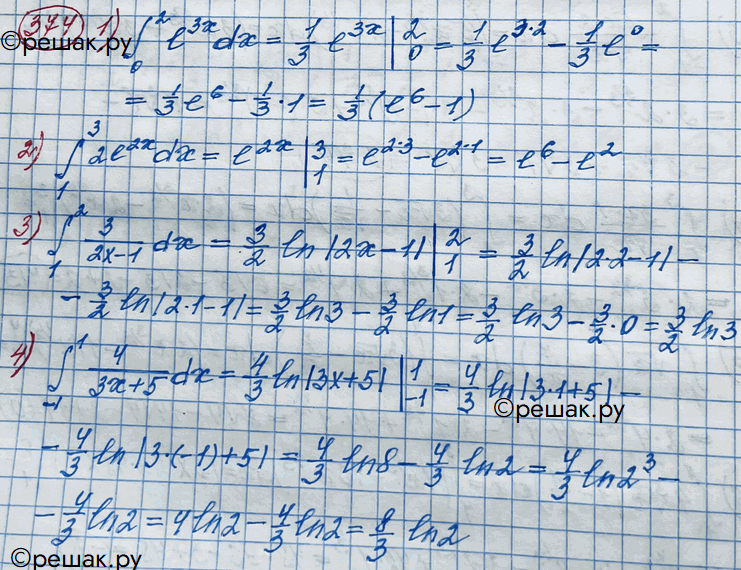 374 1) ∫₀² e^{3x} dx = 1/3 e^{3x} |₀² = 1/3 e^{3·2} − 1/3 e⁰ =
©решак.ру
= 1/3 e⁶ − 1/3 · 1 = 1/3 (e⁶ − 1)
2) ∫₁³ 2e^{2x} dx = e^{2x} |₁³ = e^{2·3} − e^{2·1} = e⁶ − e²
3) ∫₁² 3/(2x−1) dx = 3/2 ln |2x−1| |₁² = 3/2 ln|2·2−1| −
− 3/2 ln|2·1−1| = 3/2 ln3 − 3/2 ln1 = 3/2 ln3 − 3/2 · 0 = 3/2 ln3
4) ∫₋₁¹ 4/(3x+5) dx = 4/3 ln|3x+5| |₋₁¹ = 4/3 ln|3·1+5| −
©решак.ру
− 4/3 ln|3·(−1)+5| = 4/3 ln8 − 4/3 ln2 = 4/3 ln2³ −
− 4/3 ln2 = 4ln2 − 4/3 ln2 = 8/3 ln2
©решак.ру